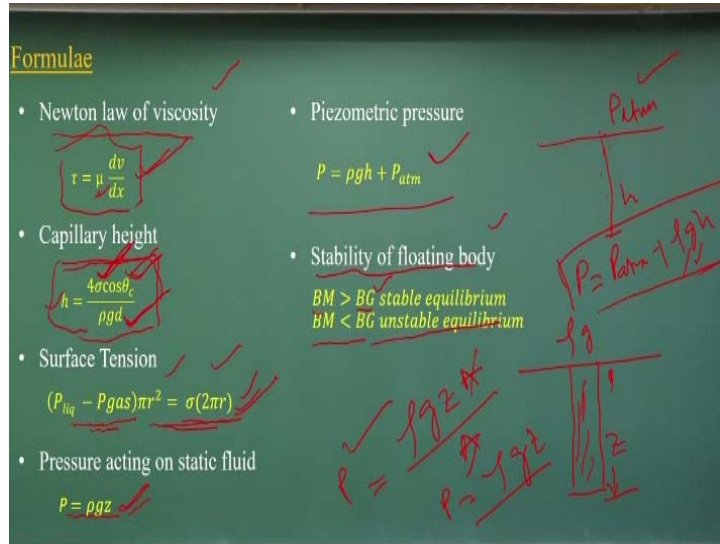 Formulae
• Newton law of viscosity
τ = μ dv/dx
• Capillary height
h = 4σcosθc/ρgd
• Surface Tension
(Pliq − Pgas)πr² = σ(2πr)
• Pressure acting on static fluid
P = ρgz
• Piezometric pressure
P = ρgh + Patm
• Stability of floating body
BM > BG stable equilibrium
BM < BG unstable equilibrium
Patm
h
P = Patm + ρgh
ρg
z
P = ρgz A/A
P = ρgz